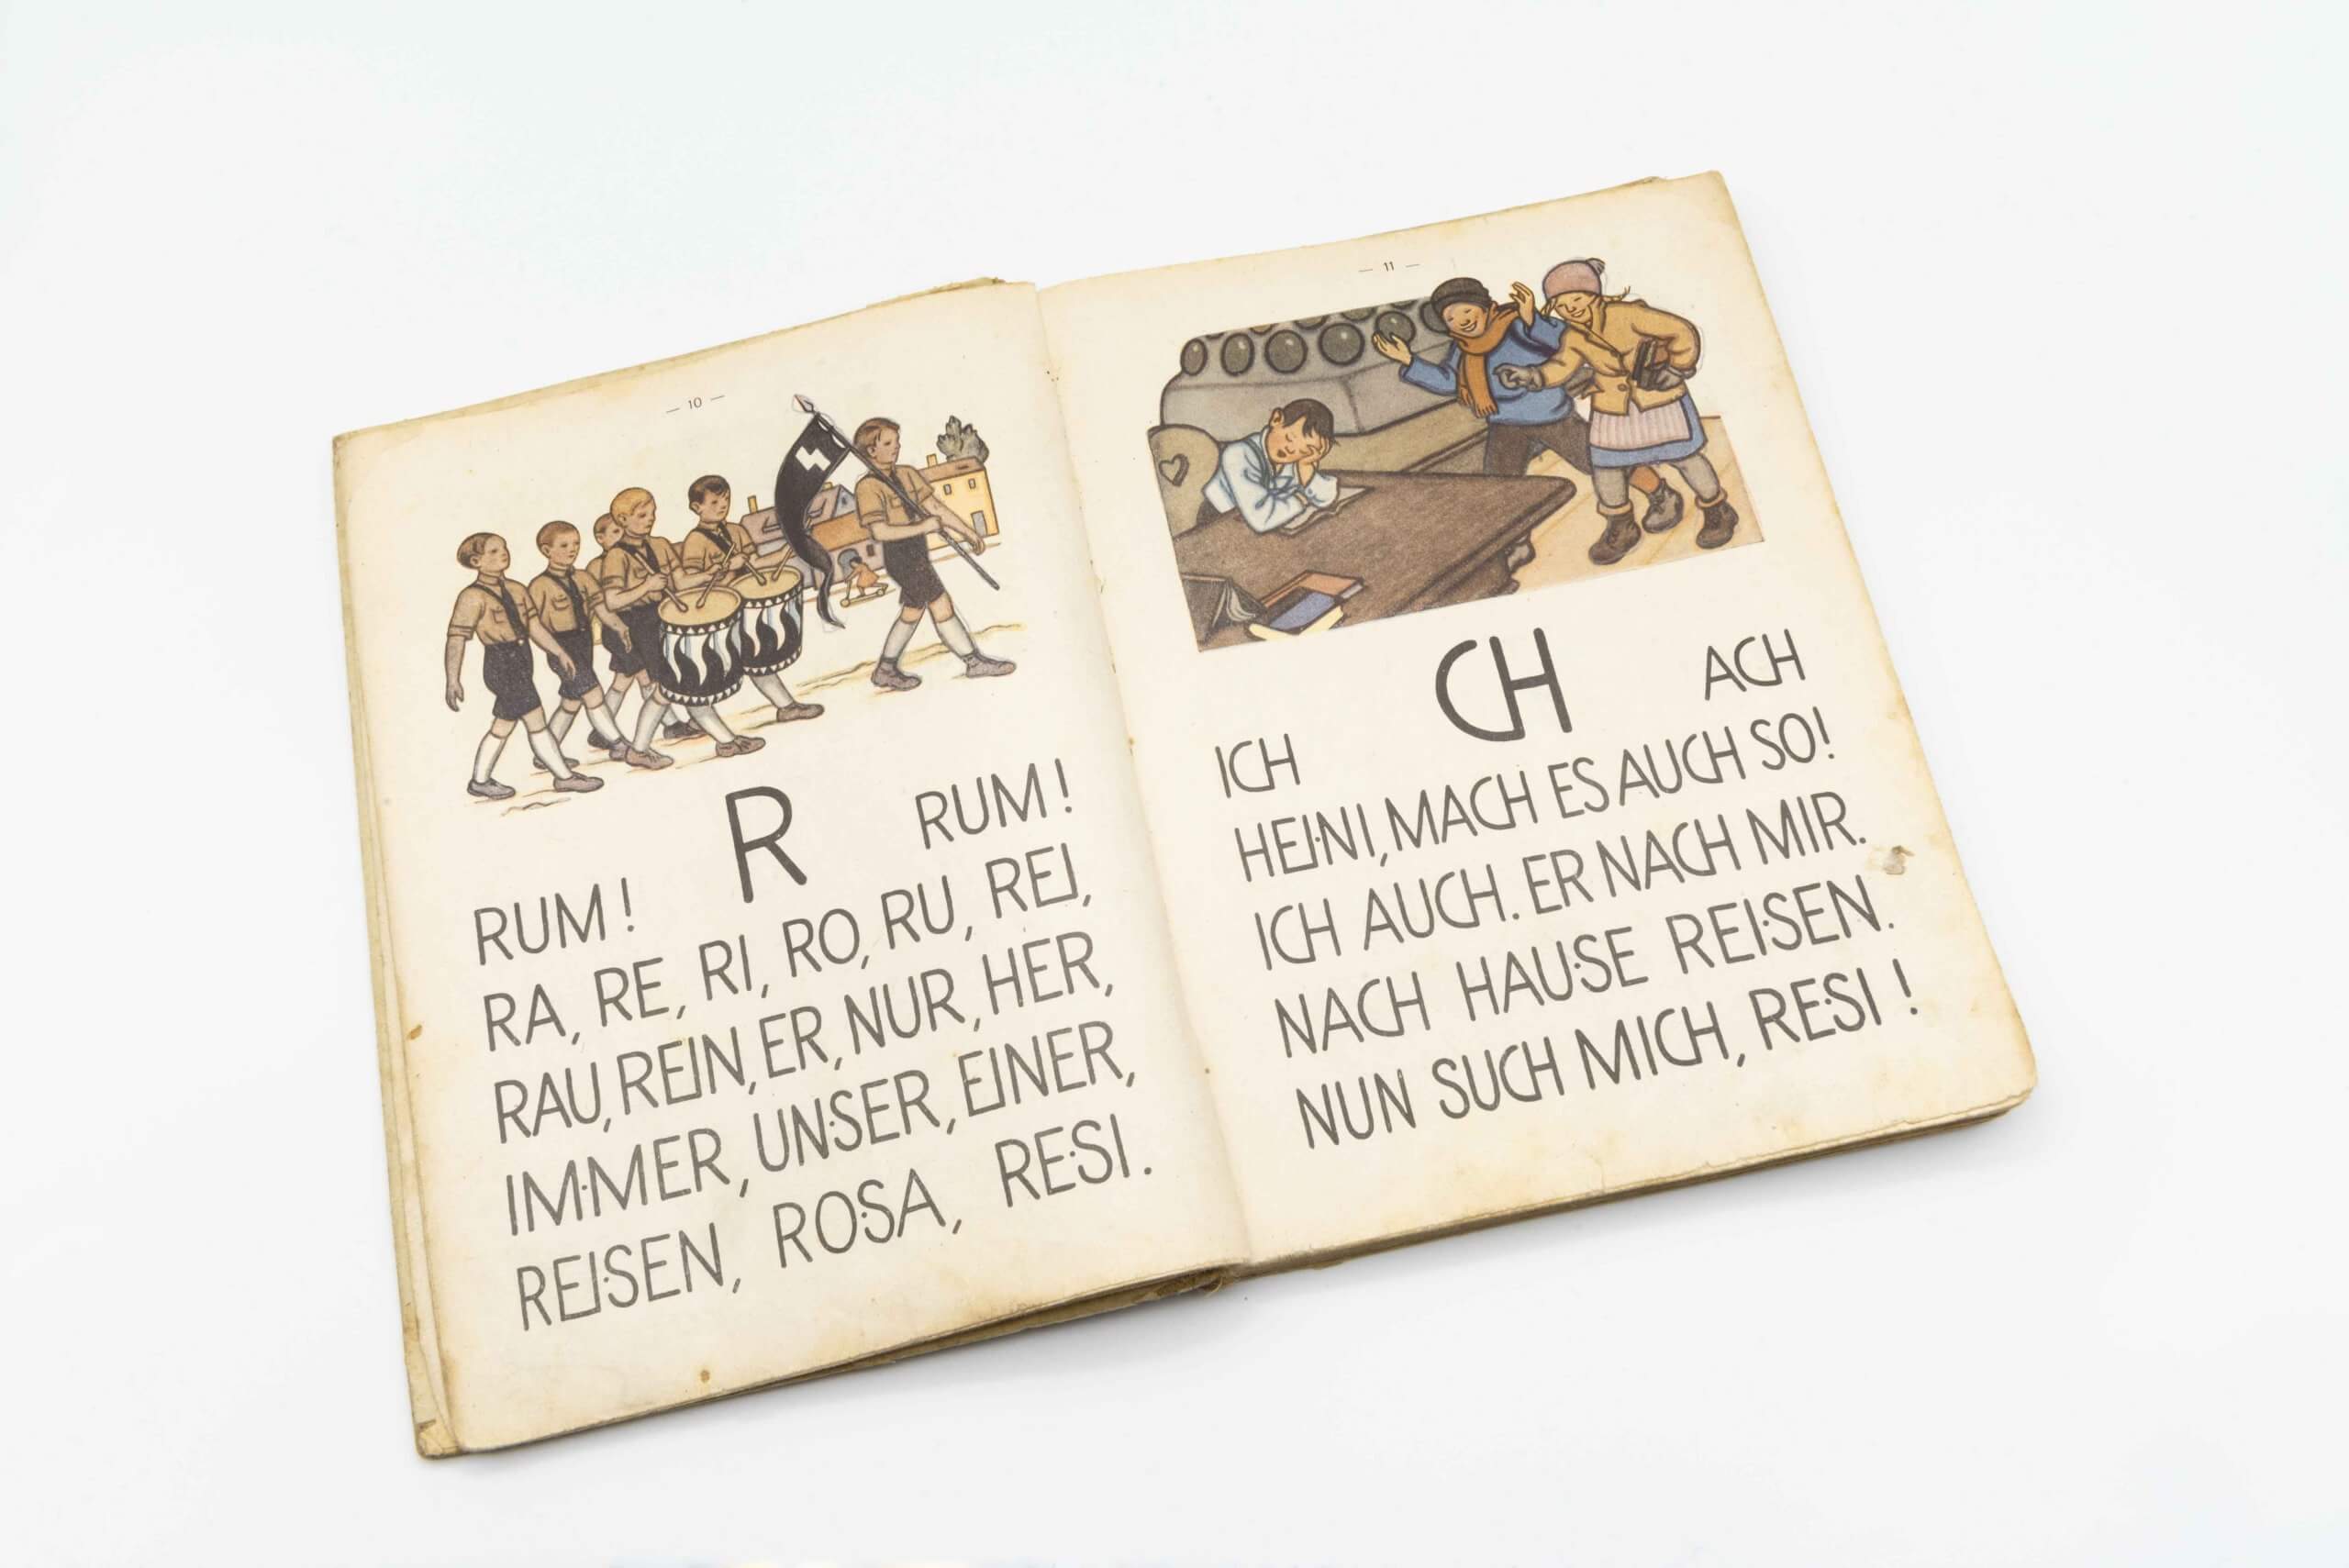 — 10 —
R
RUM! RUM!
RA, RE, RI, RO, RU, REI,
RAU, REIN, ER, NUR, HER,
IM·MER, UN·SER, EINER,
REI·SEN, RO·SA, RE·SI.
— 11 —
CH
ICH ACH
HEI·NI, MACH ES AUCH SO!
ICH AUCH. ER NACH MIR.
NACH HAU·SE REI·SEN.
NUN SUCH MICH, RE·SI!